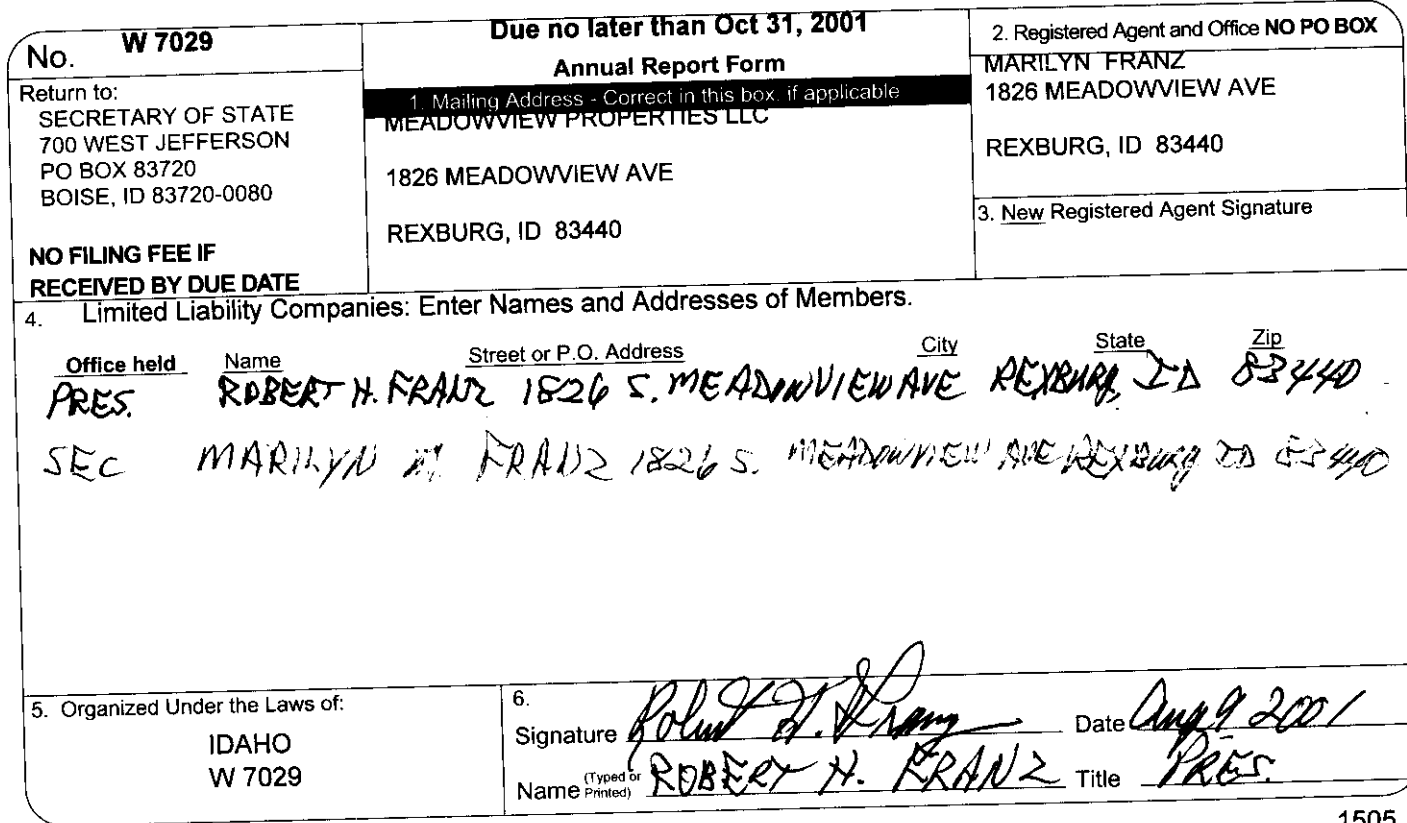 No. W 7029
Return to:
SECRETARY OF STATE
700 WEST JEFFERSON
PO BOX 83720
BOISE, ID 83720-0080
NO FILING FEE IF
RECEIVED BY DUE DATE
Due no later than Oct 31, 2001
Annual Report Form
1. Mailing Address - Correct in this box, if applicable
MEADOWVIEW PROPERTIES LLC
1826 MEADOWVIEW AVE
REXBURG, ID 83440
2. Registered Agent and Office NO PO BOX
MARILYN FRANZ
1826 MEADOWVIEW AVE
REXBURG, ID 83440
3. New Registered Agent Signature
4. Limited Liability Companies: Enter Names and Addresses of Members.
Office held Name Street or P.O. Address City State Zip
PRES. ROBERT H. FRANZ 1826 S. MEADOWVIEW AVE REXBURG, ID 83440
SEC MARILYN M. FRANZ 1826 S. MEADOWVIEW AVE REXBURG ID 83440
5. Organized Under the Laws of:
IDAHO
W 7029
6.
Signature Robert H. Franz Date Aug 9 2001
Name (Typed or Printed) ROBERT H. FRANZ Title PRES.
1505